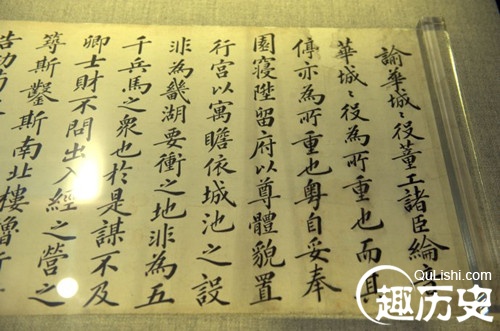 諭華城〻役董工諸臣綸音
華城〻役為所重也而其
停亦為所重也粤自妥奉
園寝陞留府以尊體貌置
行宮以寓瞻依城池之設
非為畿湖要衝之地非為五
千兵馬之衆也於是謀不及
卿士財不問出入經之營之
筭斯鑿斯南北樓櫓
告功
QuLiShi.com
趣历史